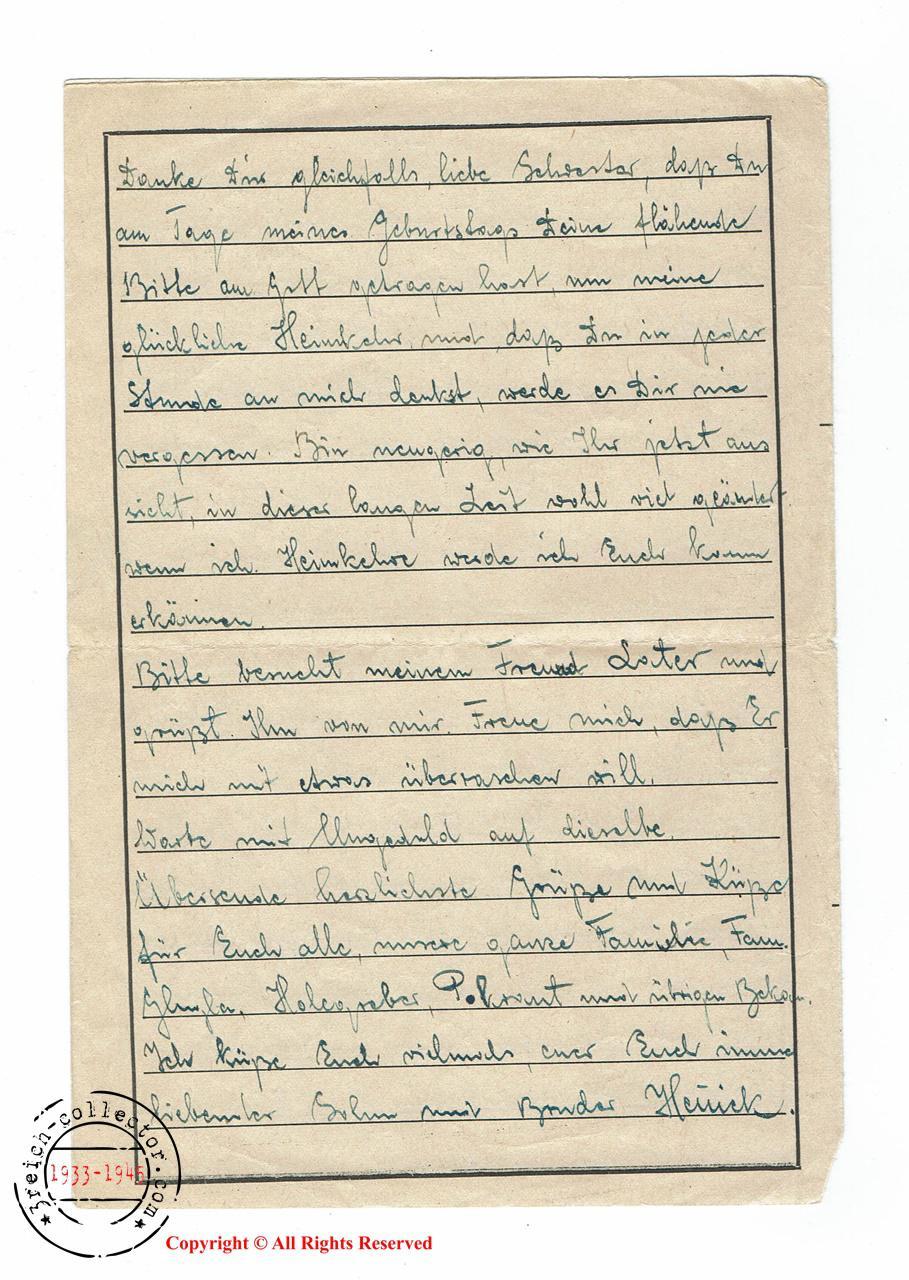 Danke Dir gleichfalls, liebe Schwester, daß Du
am Tage meines Geburtstags Deine flähende
Bitte am Gott getragen hast, um meine
glückliche Heimkehr, und daß Du in jeder
Stunde an mich denkst, werde es Dir nie
vergessen. Bin neugerig, wie Ihr jetzt aus
sicht, in dieser langen Zeit wohl viel geändert
wenn ich Heimkehre werde ich Euch kaum
erkännen.
Bitte besucht meinem Freund Later und
grüßt Ihn von mir. Freue mich, daß Er
mich mit etwas überraschen will.
Warte mit Ungeduld auf dieselbe.
Übersende herzlichste Grüße und Küße
für Euch alle, unsere ganze Familie, Fam.
Holzgreber, und übrigen Bekan.
Ich küße Euch vielmals, euer Euch immer
liebender Sohn und Bruder
3reich-collector.com
1933-1945
Copyright © All Rights Reserved